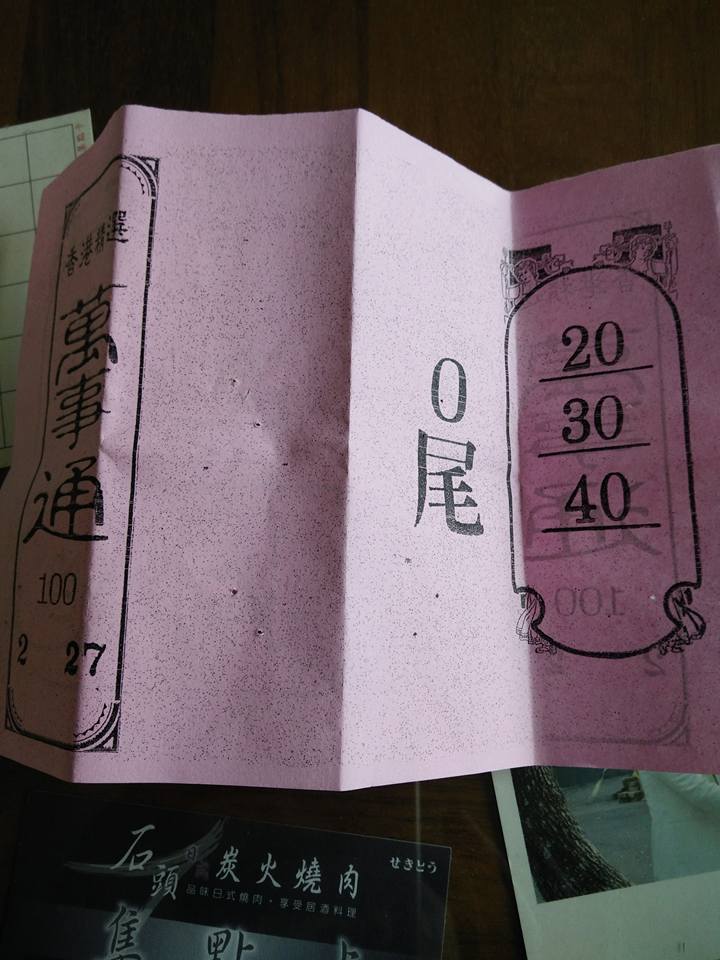 香港精選
萬事通
100
2 27
0尾
20
30
40
100
石頭日式炭火燒肉
せきとう
品味日式燒肉・享受居酒料理
集點卡